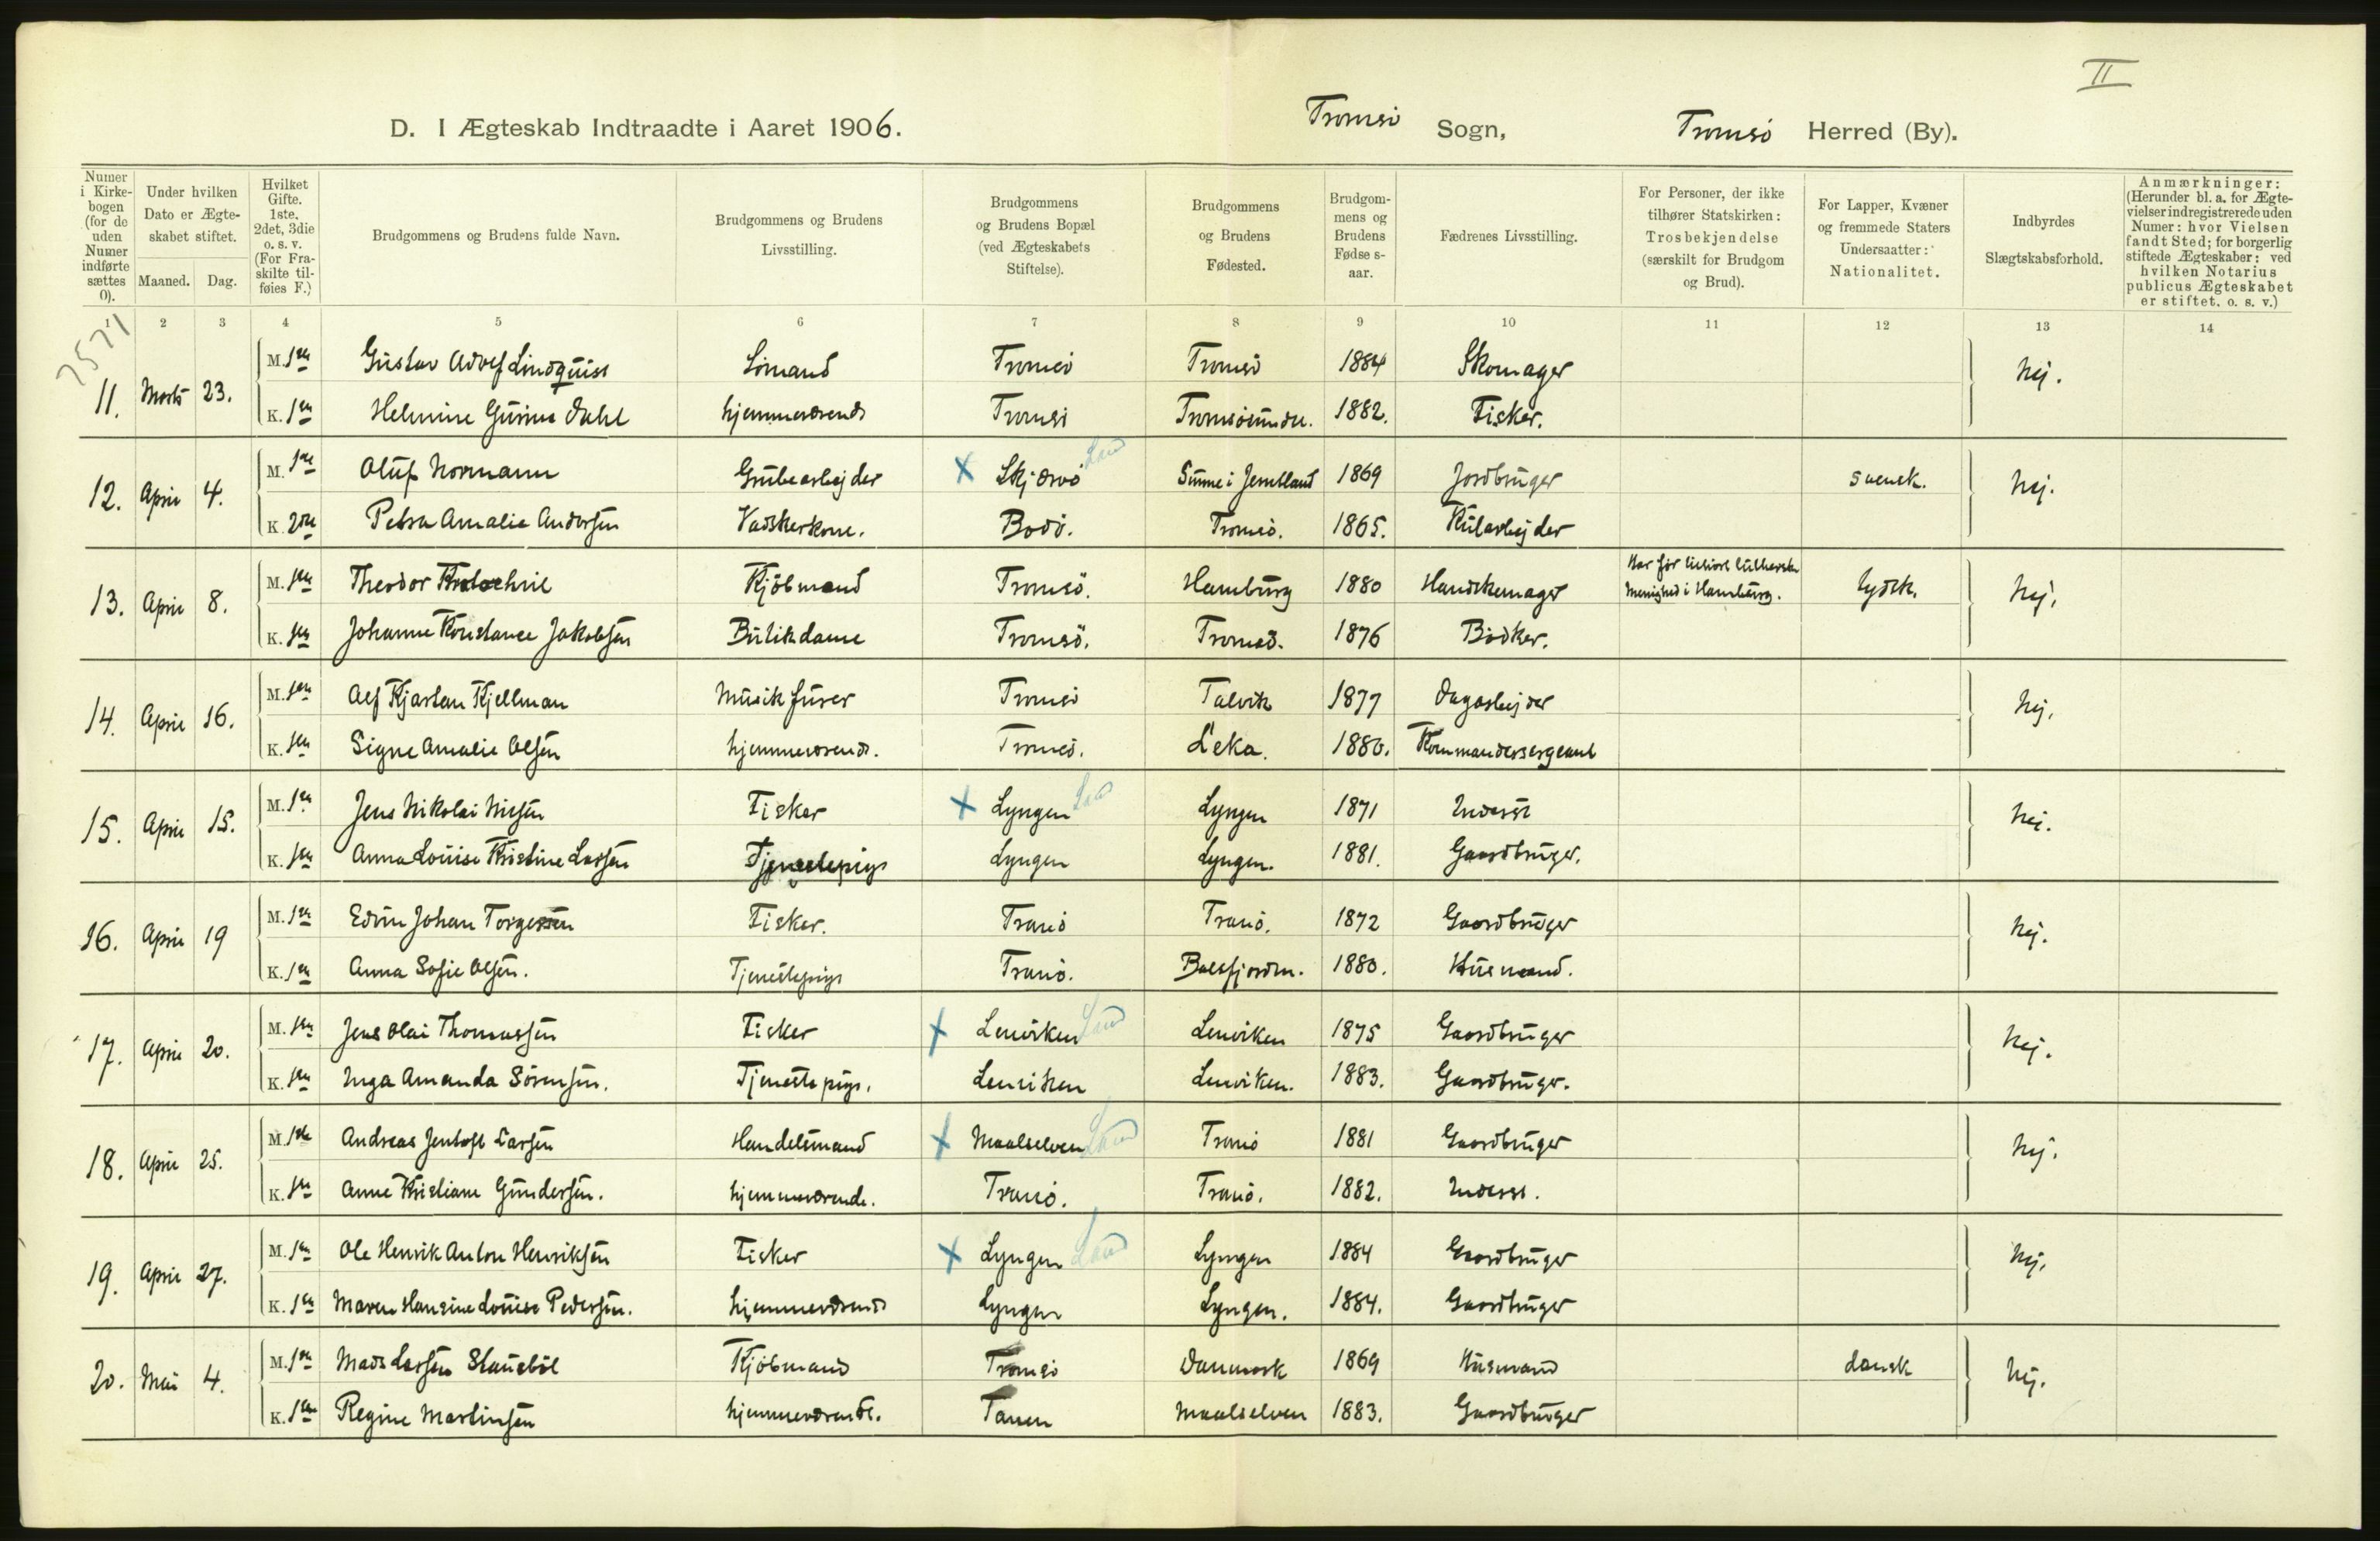 II
D. I Ægteskab Indtraadte i Aaret 1906.
Tromsø Sogn,
Tromsø Herred (By).
Numer i Kirkebogen (for de uden Numer indførte sættes 0).
Under hvilken Dato er Ægteskabet stiftet.
Maaned. Dag.
Hvilket Gifte. 1ste, 2det, 3die o. s. v. (For Fraskilte tilføies F.)
Brudgommens og Brudens fulde Navn.
Brudgommens og Brudens Livsstilling.
Brudgommens og Brudens Bopæl (ved Ægteskabets Stiftelse).
Brudgommens og Brudens Fødested.
Brudgommens og Brudens Fødse s-aar.
Fædrenes Livsstilling.
For Personer, der ikke tilhører Statskirken: Trosbekjendelse (særskilt for Brudgom og Brud).
For Lapper, Kvæner og fremmede Staters Undersaatter: Nationalitet.
Indbyrdes Slægtskabsforhold.
Anmærkninger: (Herunder bl. a. for Ægtevielser indregistrerede uden Numer: hvor Vielsen fandt Sted; for borgerlig stiftede Ægteskaber: ved hvilken Notarius publicus Ægteskabet er stiftet. o. s. v.)
1 2 3 4 5 6 7 8 9 10 11 12 13 14
11. Marts 23. M. 1ste Gustav Adolf Lindquist Sømand Tromsø Tromsø 1884 Skomager Nej.
K. 1ste Helmine Gurine Dahl hjemmeværende Tromsø Tromsøsundet. 1882. Fisker.
12. April 4. M. 1ste Oluf Normann Grubearbejder X Skjervø Land Sunne i Jemtland 1869 Jordbruger svensk. Nej.
K. 2det Petra Amalie Andersen Vaskerkone. Bodø. Tromsø. 1865. Kularbejder
13. April 8. M. 1ste Theodor Kjøbmand Tromsø. Hamburg 1880 Handskemager Menighed i Hamburg. tydsk. Nej.
K. 1ste Johanne Konstance Jakobsen Butikdame Tromsø. Tromsø. 1876 Bødker.
14. April 16. M. 1ste Alf Kjartan Kjellman Musikfurer Tromsø Talvik 1877 Dagarbejder Nej.
K. 1ste Signe Amalie Olsen hjemmeværende. Tromsø. Leka. 1880. Kommandersergeant
15. April 15. M. 1ste Jens Nikolai Nilsen Fisker X Lyngen Land Lyngen 1871 Inderst Nej.
K. 1ste Anna Louise Kristine Larsen Tjenestepige Lyngen Lyngen. 1881. Gaardbruger.
16. April 19 M. 1ste Edvin Johan Torgersen Fisker. Tranø Tranø. 1872 Gaardbruger Nej.
K. 1ste Anna Sofie Olsen. Tjenestepige Tranø. Balsfjorden. 1880. Husmand.
17. April 20. M. 1ste Jens Olai Thomassen Fisker X Lenviken Land Lenviken 1875 Gaardbruger Nej.
K. 1ste Inga Amanda Sørensen. Tjenestepige. Lenviken Lenviken. 1883. Gaardbruger.
18. April 25. M. 1ste Andreas Jentoft Larsen Handelsmand X Maalselven Land Tranø 1881 Gaardbruger Nej.
K. 1ste Anne Kristiane Gundersen. hjemmeværende. Tranø. Tranø. 1882. Inderst.
19. April 27. M. 1ste Ole Henrik Anton Henriksen Fisker X Lyngen Land Lyngen 1884 Gaardbruger Nej.
K. 1ste Maren Hansine Louise Pedersen. hjemmeværende Lyngen Lyngen. 1884. Gaardbruger
20. Mai 4. M. 1ste Mads Larsen Stausbøl Kjøbmand Tromsø Danmark 1869 Husmand dansk Nej.
K. 1ste Regine Martinsen hjemmeværende. Tanen Maalselven 1883. Gaardbruger